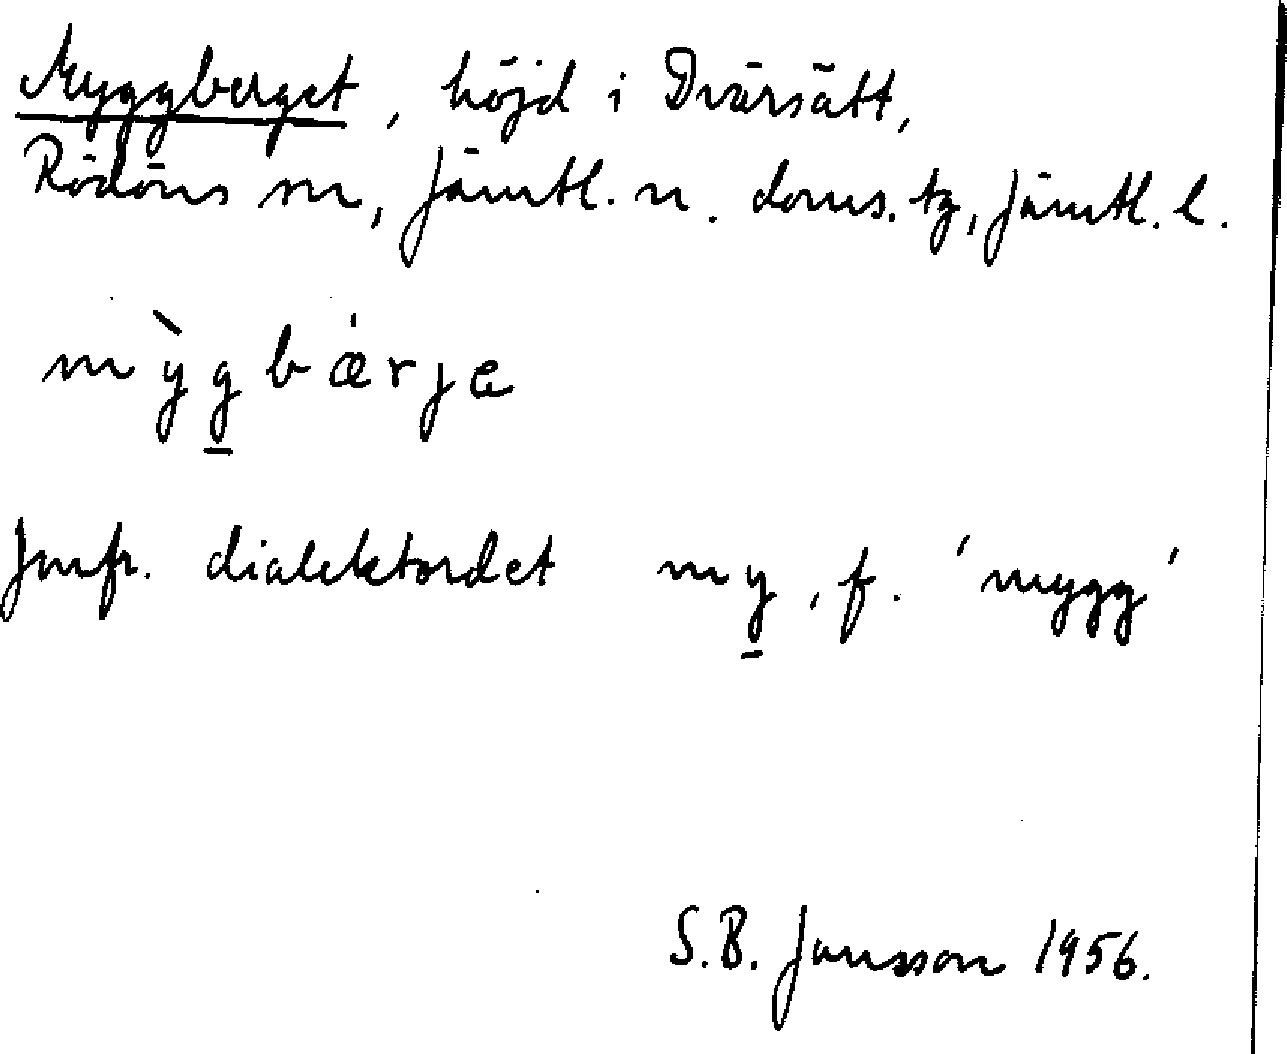 Myggberget, höjd i Dvärsätt,
Rödöns sn, Jämtl. n. doms. tg, Jämtl. l.
mỳgbǽrjɐ
Jmfr. dialektordet my, f. 'mygg'
S.B. Jansson 1956.